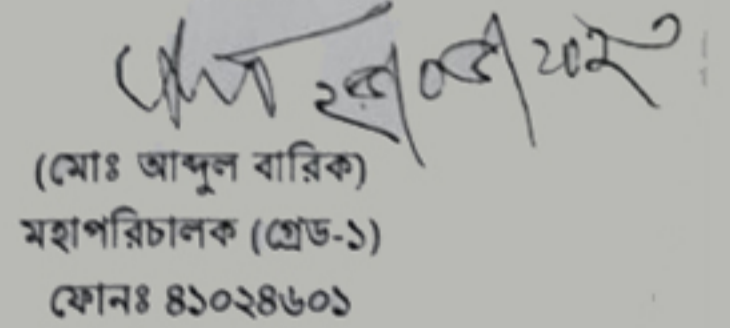 (মোঃ আব্দুল বারিক)
মহাপরিচালক (গ্রেড-১)
ফোনঃ ৪১০২৪৬০১